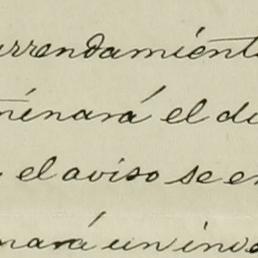 arrendamiento
minará el di
el aviso se en
nará un inve